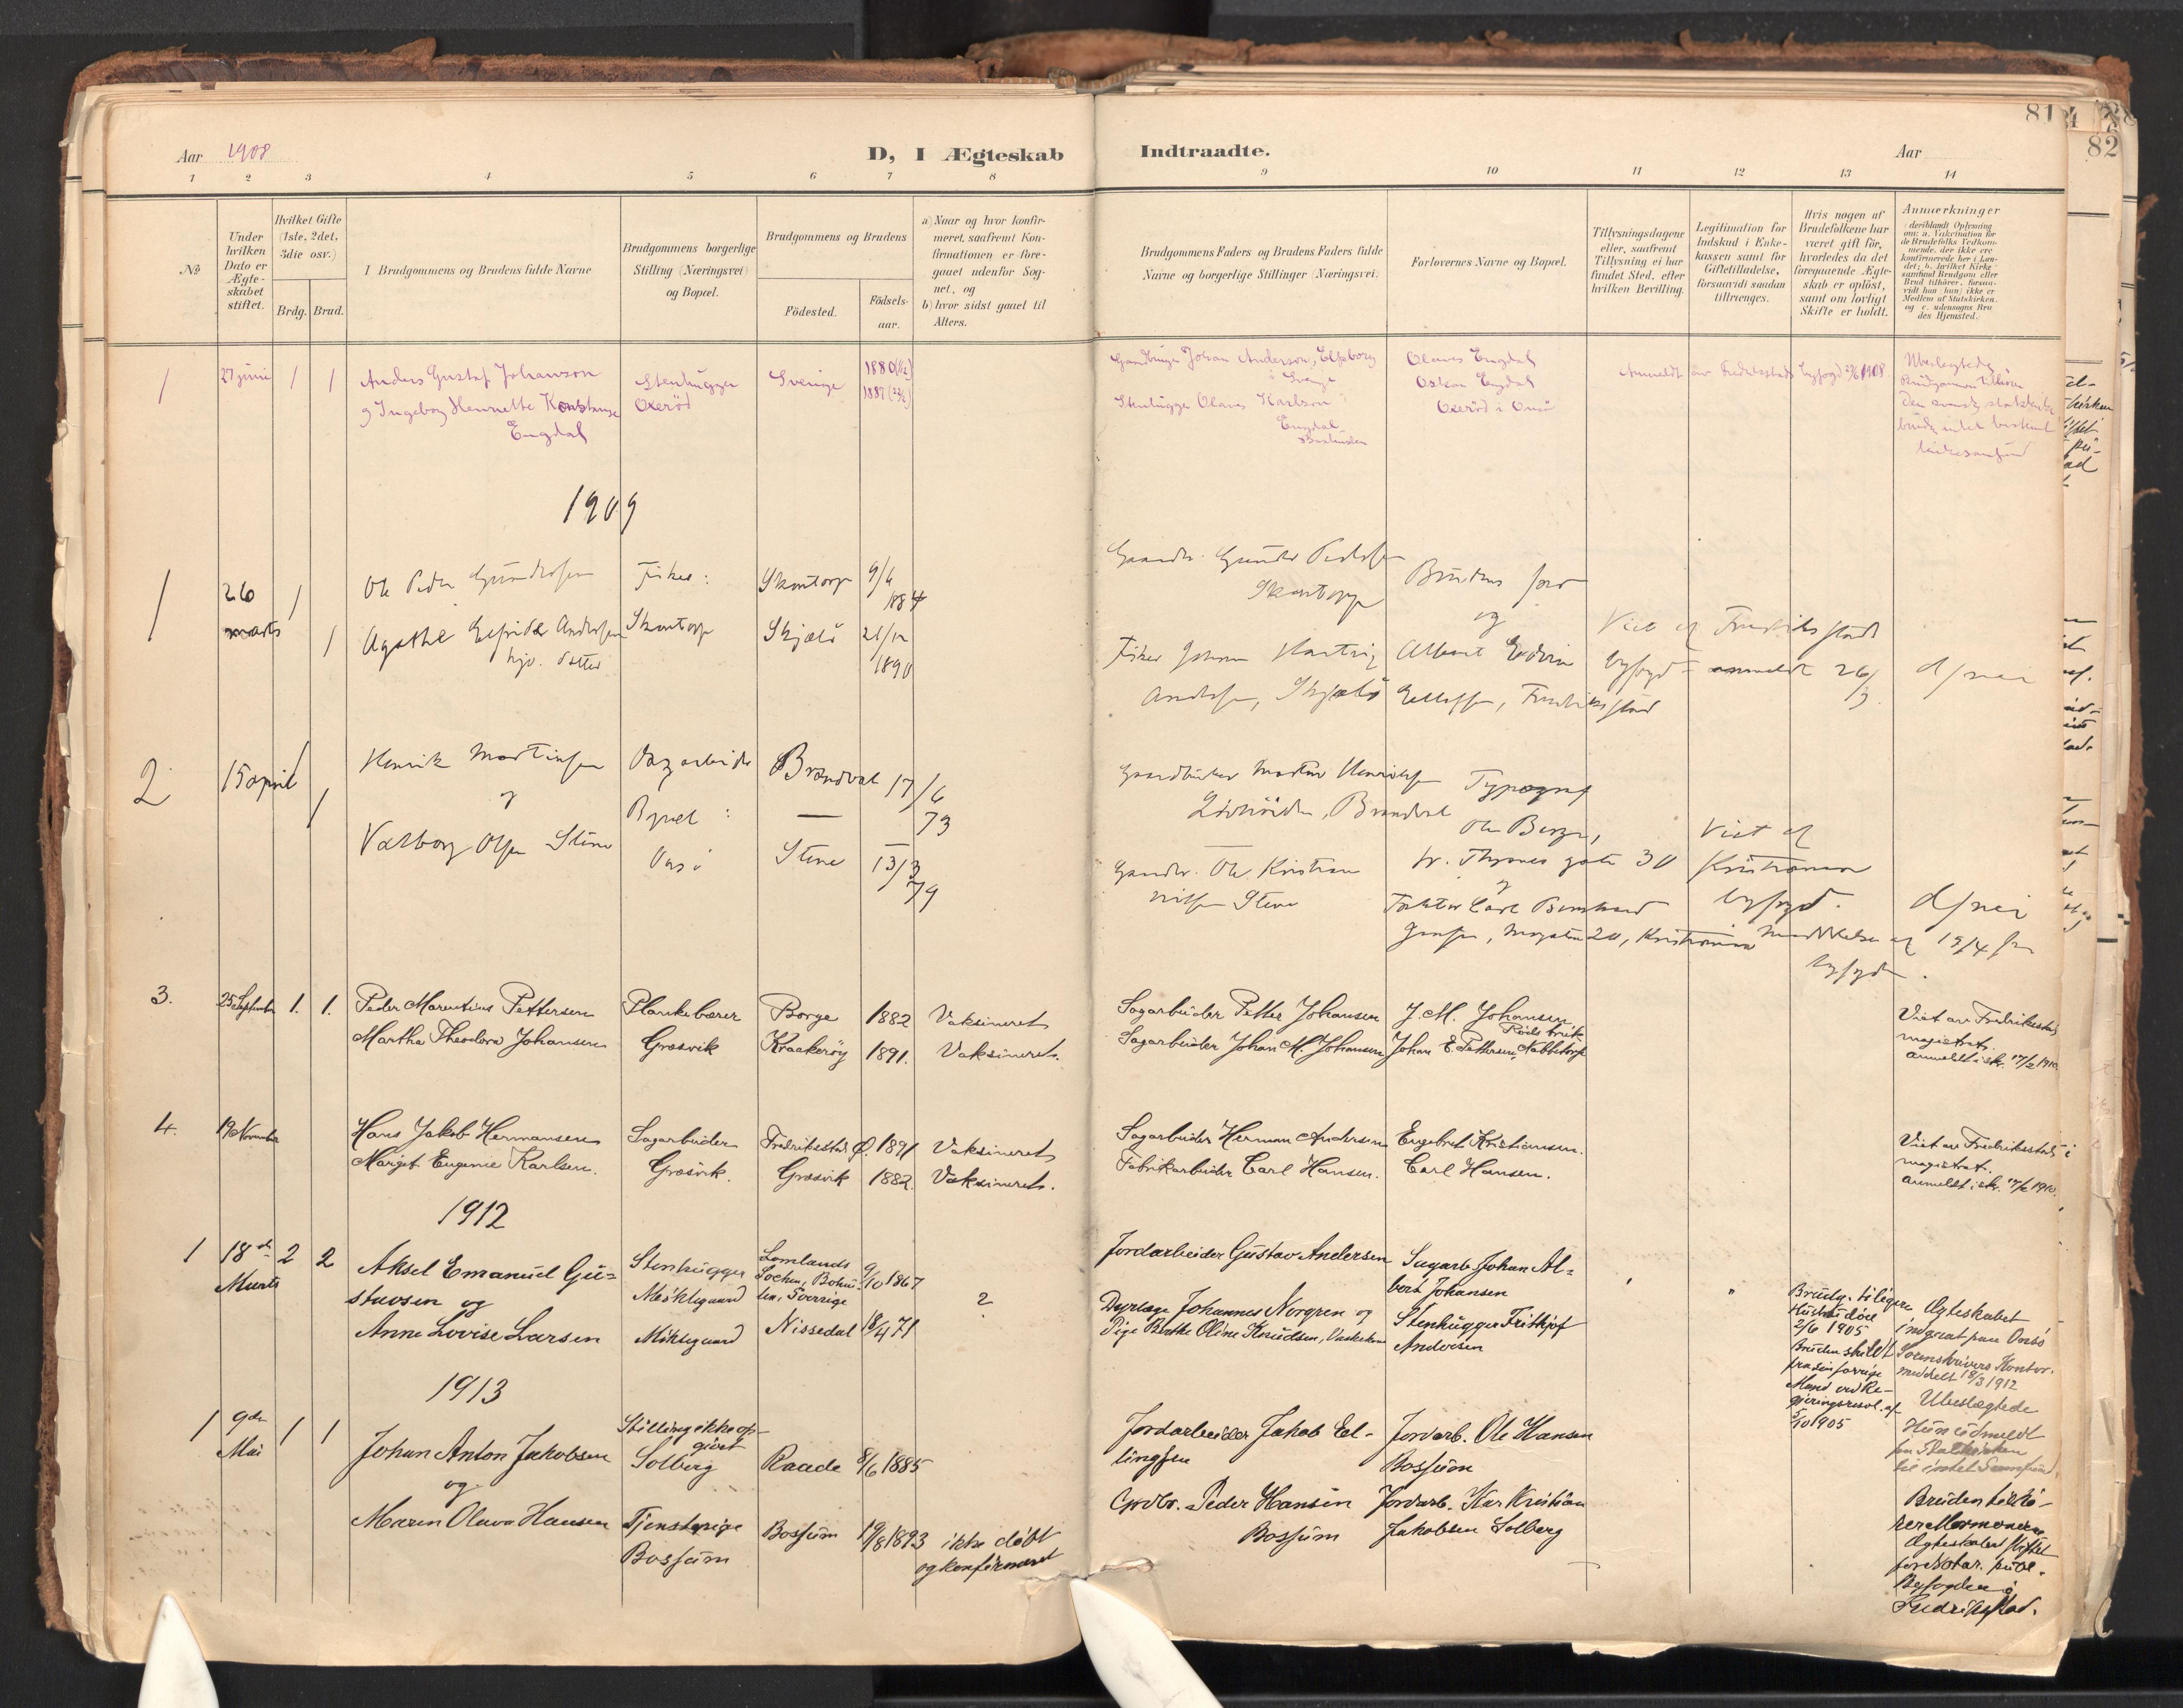 Aar 1908
D, I Ægteskab
Indtraadte.
Aar
81
82
1 2 3 4 5 6 7 8 9 10 11 12 13 14
No
Under hvilken Dato er Ægteskabet stiftet.
Hvilket Gifte (1ste, 2det, 3die osv.)
Brdg. Brud.
I Brudgommens og Brudens fulde Navne
Brudgommens borgerlige Stilling (Næringsvei) og Bopæl.
Brudgommens og Brudens
Födested.
Födsels-aar.
a) Naar og hvor konfir-
meret, saafremt Kon-
firmationen er fore-
gaaet udenfor Sog-
net, og
b) hvor sidst gaaet til
Alters.
Brudgommens Faders og Brudens Faders fulde
Navne og borgerlige Stillinger (Næringsvei)
Forlovernes Navne og Bopæl.
Tillysningsdagene
eller, saafremt
Tillysning ei har
fundet Sted, efter
hvilken Bevilling.
Legitimation for
Indskud i Enke-
kassen samt for
Giftetilladelse,
forsaavidt saadan
tiltrænges.
Hvis nogen af
Brudefolkene har
været gift för,
hvorledes da det
foregaaende Ægte-
skab er oplöst,
samt om lovligt
Skifte er holdt.
Anmerkninger
(deriblandt Oplysning
om: a. Vakcination for
de Brudefolks Vedkom-
mende, der ikke ere
konfirmerede her i Lan-
det; b. hvilket Kirke-
samfund Brudgom eller
Brud tilhörer, forsaa-
vidt han (hun) ikke er
Medlem af Statskirken,
og c. udensogns Bru-
des Hjemsted.
1 27 juni 1 1 Anders Gustaf Johanson
og Ingeborg Henriette Konstanse
Engdal
Stenhugger
Oxeröd
Sverige
1880 (1/2)
1887
Johan Anderson, Elfsborg
i Sverige
Stenhugger Olaves Karlson
Engdal
Olaves Engdal
Oskar Engdal
Oxeröd i Onsö
Anmeldt av Fredrikstads byfogd 29/6 1908
Ubeslegtede
Brudgommen tilhörer
Den svenske statskirke
bruden intet bestemt
kirkesamfund
1909
1 26 marts 1 Ole Peder Gundersen
1 Agathe Elfride Andersen
hjv. datter
Fisker:
Skontorp
Skontorp 9/6 1884
Skjælö 21/12 1890
Gaardbr. Gunder Pedersen
Skontorp
Fisker Johan Hartvig
Andersen, Skjælö
Brudens far
og
Albert Edvin
Ellefsen, Fredriksstad
Viet af Fredriksstad
byfogd – anmeldt 26/3
d/nei
2 15 april 1 Henrik Martinsen
og
1 Valborg Olsen Stene
Dagarbeider
Bopæl:
Onsö
Brandval 17/6 73
Stene 13/3 79
Gaardbruker Martin Henriksen
Brandval
Gaardbr. Ole Kristian
Nilsen Stene
Typograf
Ole Berger,
Fr. Thranes gate 30
og
Faktor Carl Bernhard
Jensen, Mogaten 20, Kristiania
Viet af
Kristiania
byfogd.
Meddelelse af 15/4 fra
byfogd.
d/nei
3. 25 September 1. 1. Peder Marentius Pettersen
Martha Theodora Johansen
Plankebærer
Græsvik
Borge 1882 Vaksineret
Kraakeröy 1891. Vaksineret.
Sagarbeider Petter Johansen
Sagarbeider Johan M. Johansen
J. M. Johansen
Röds brük
Johan E. Pettersen, Nabbetorp
Viet av Fredrikstads
magistrat.
anmeldt i sk. 17/2 1910.
4. 19 November Hans Jakob Hermansen
Margit Eugenie Karlsen.
Sagarbeider
Græsvik.
Fredriksstad Ø. 1891 Vaksineret
Græsvik 1882. Vaksineret.
Sagarbeider Herman Andersen
Fabrikarbeider Carl Hansen.
Engebret Kristiansen.
Carl Hansen.
Viet av Fredriksstads
magistrat.
anmeldt i sk. 17/2 1910.
1912
1 18de Marts 2 2 Aksel Emanuel Gu=
stavsen og
Anne Lovise Larsen
Stenhugger
Möklegaard
Möklegaard
Lomlands
Sochen, Bohus
len, Sverige
9/10 1867
Nissedal 18/4 71
?
Jordarbeider Gustav Andersen
Dyrlæge Johannes Norgren og
Pige Berthe Oline Knudsen, Vaskekone
Sagarb. Johan Al=
bert Johansen
Stenhugger Frithjof
Andersen
Brudg. tidligere
Hustru död
2/6 1905
Bruden skildt
fra sin forrige
Mand ved Re-
gjeringsresol. af
5/10 1905
Ægteskabet
indgaat paa Onsö
Sorenskrivers Kontor.
meddelt 18/3 1912
Ubeslægtede
Hun udmeldt
fra Statskirken
til intet Samfund.
1913
1 9de Mai 1 1 Johan Anton Jakobsen
og
Maren Olava Hansen
Stilling ikke op-
givet
Solberg
Tjenestepige
Bossum
Raade 8/6 1885
Bossum 19/8 1893 ikke döbt
og konfirmeret
Jordarbeider Jakob El-
lingsen
Grdbr. Peder Hansen
Bossum
Jordarb. Ole Hansen
Bossum
Jordarb. Kar Kristian
Jakobsen Solberg
Bruden tilhö-
rer Mormonerne
Ægteskabet stiftet
for Notar. publ.
Byfogden i
Fredrikstad.